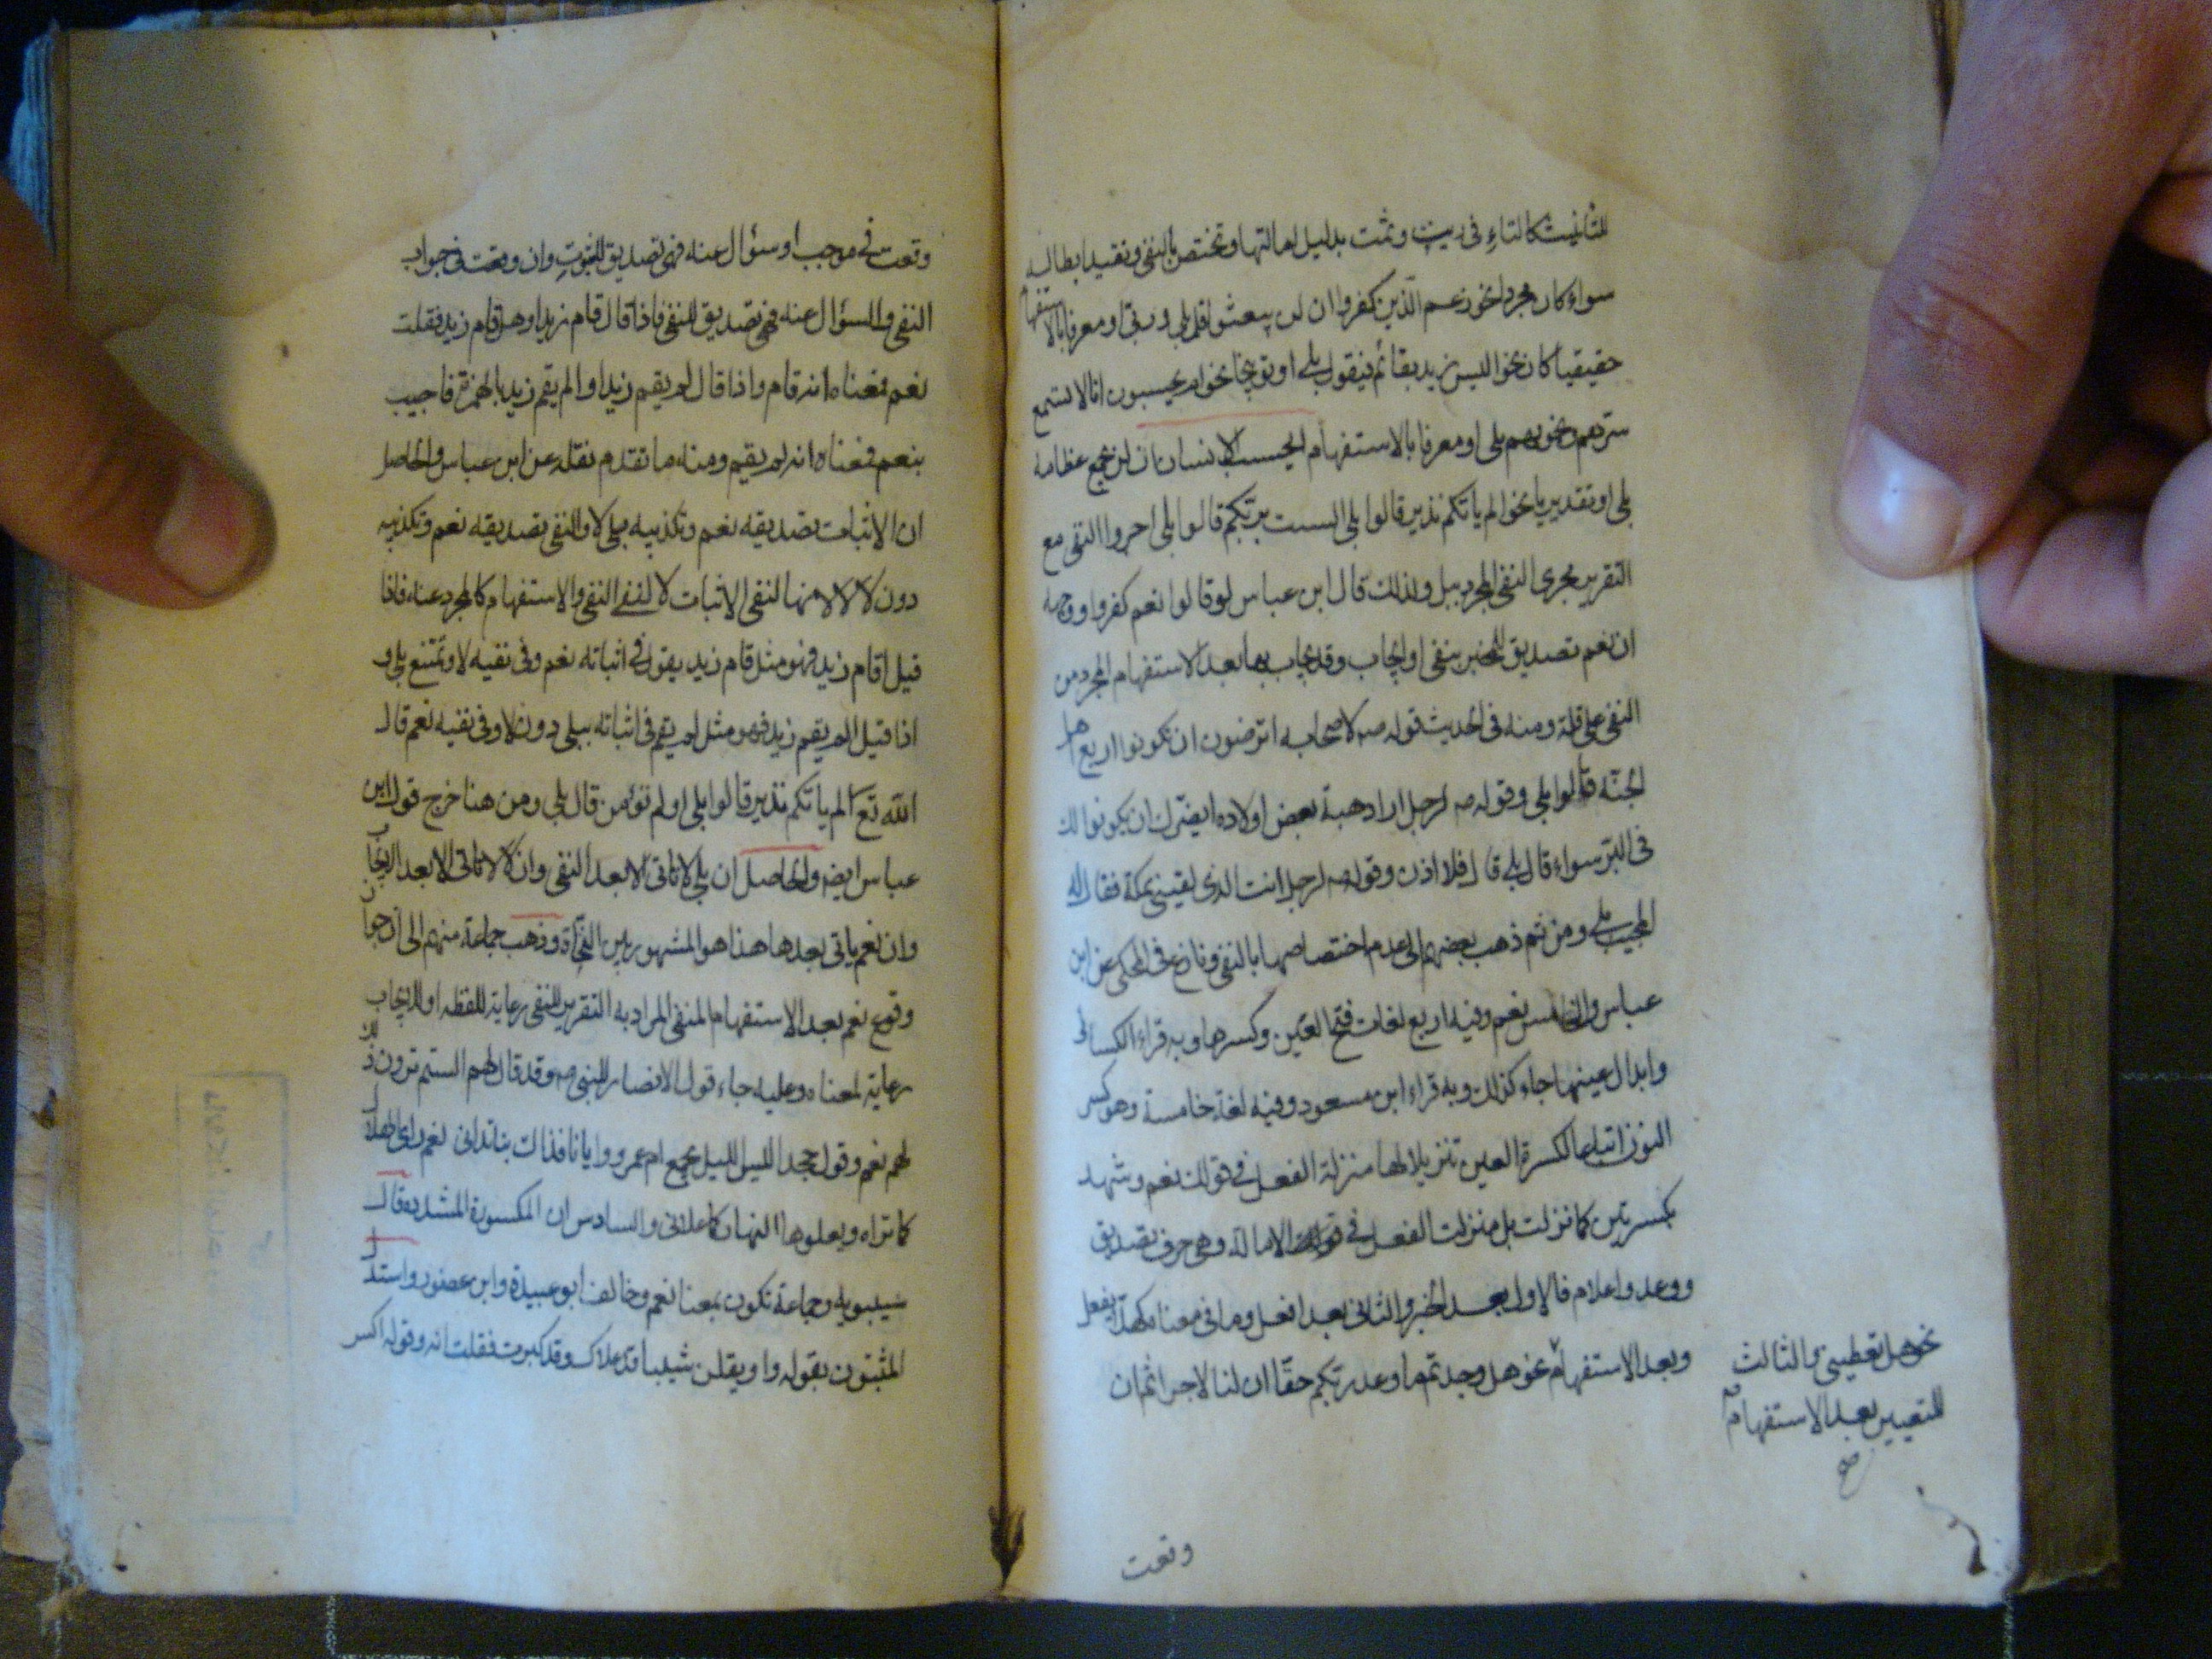 للتأنيث كالتاء في ربت وثمت بدليل امالتها وتختص بالنفي وتفيد ابطاله
سواء كان مجردا نحو زعم الذين كفروا ان لن يبعثوا قل بلى وربي او معرفا بالاستفها
حقيقيا كان نحو اليس زيد بقائم فيقول بلى او توبيخا نحو ام يحسبون انا لا نسمع
سرهم ونجويهم بلى او معرفا بالاستفهام ايحسب الانسان ان لن نجمع عظامه
بلى او تقديريا نحو الم ياتكم نذير قالوا بلى الست بربكم قالوا بلى اجروا النفي مع
التقرير مجرى النفي المجرد ببلى ولذلك قال ابن عباس لو قالوا نعم كفروا ووجهه
ان نعم تصديق للمخبر بنفي او ايجاب وقد يجاب بها بعد الاستفهام المجرد من
النفي على قلة ومنه في الحديث قوله صه لاصحابه اترضون ان تكونوا اربع اهل
الجنة قالوا بلى وقوله صه لرجل اراد هبة بعض اولاده ايضرك ان يكونوا لك
في البر سواء قال بلى قال فلا اذن وقوله صه لرجل انت الذي لقيتني بمكة فقال له
المجيب بلى ومن ثم ذهب بعضهم الى عدم اختصاصها بالنفي ونازع في المحكي عن ابن
عباس والخامس نعم وفيه اربع لغات فتح العين وكسرها وبه قراء الكسائى
وابدال عينها حاء كذلك وبه قراء ابن مسعود وفيه لغة خامسة وهو كسر
النون اتباعا لكسرة العين تنزيلا لها منزلة الفعل في قولك نعم وشهد
بكسرتين كما نزلت بل منزلت الفعل في الامالة وهي حرف تصديق
ووعد واعلام فالاول بعد الخبر والثاني بعد افعل وما في معناه كهلا يفعل
نحو هل تعطيني والثالث
للتعيين بعد الاستفهام
صح
وبعد الاستفهام نحو هل وجدتم ما وعد ربكم حقا ان لنا لاجرا ثم ان
وقعت
وقعت في موجب او سئوال عنه فهي تصديق للثبوت وان وقعت في جواب
النفي والسؤال عنه فهي تصديق للنفي فاذا قال قام زيد او هل قام زيد فقلت
نعم فمعناه انه قام واذا قال لم يقم زيد او الم يقم زيد بالهمزة فاجيب
بنعم فمعناه انه لم يقم ومنه ما تقدم نقله عن ابن عباس والحاصل
ان الاثبات تصديقه نعم وتكذيبه ببلى لا والنفي تصديقه نعم وتكذيبه
دون لا لا لانها لنفي الاثبات لا لنفي النفي والاستفهام كالمجرد عنه فاذا
قيل اقام زيد فهو مثل قام زيد يقول في اثباته نعم وفي نفيه لا وتمتنع بلى و
اذا قيل الم يقم زيد فهو مثل لم يقم في اثباته ببلى دون لا وفي نفيه نعم قال
الله تع الم ياتكم نذير قالوا بلى اولم تؤمن قال بلى ومن هنا خرج قول ابن
عباس ايضه والحاصل ان بلى لا تاتى الا بعد النفي وان لا لا تاتى الا بعد الايجاب
وان نعم ياتى بعدها هذا هو المشهور بين النحاة وذهب جماعة منهم الى ان جوا
وقوع نعم بعد الاستفهام المنفي المراد به التقرير للنفي رعاية للفظه او للايجاب
رعاية لمعناه وعليه جاء قول الانصار للنبي صه وقد قال لهم الستم ترون ذلك
لهم نعم وقول جحد اليس الليل يجمع ام عمرو وايانا فذاك بنا تداني نعم وارى الهلال
كما تراه ويعلوها النهار كما علاني والسادس ان المكسورة المشدده قال
سيبويه وجماعة تكون بمعنا نعم وخالف ابو عبيدة وابن عصفور واستدل
المثبتون بقوله واو يقلن شيبا قد علاك وقد كبرت فقلت انه وقوله اكسر